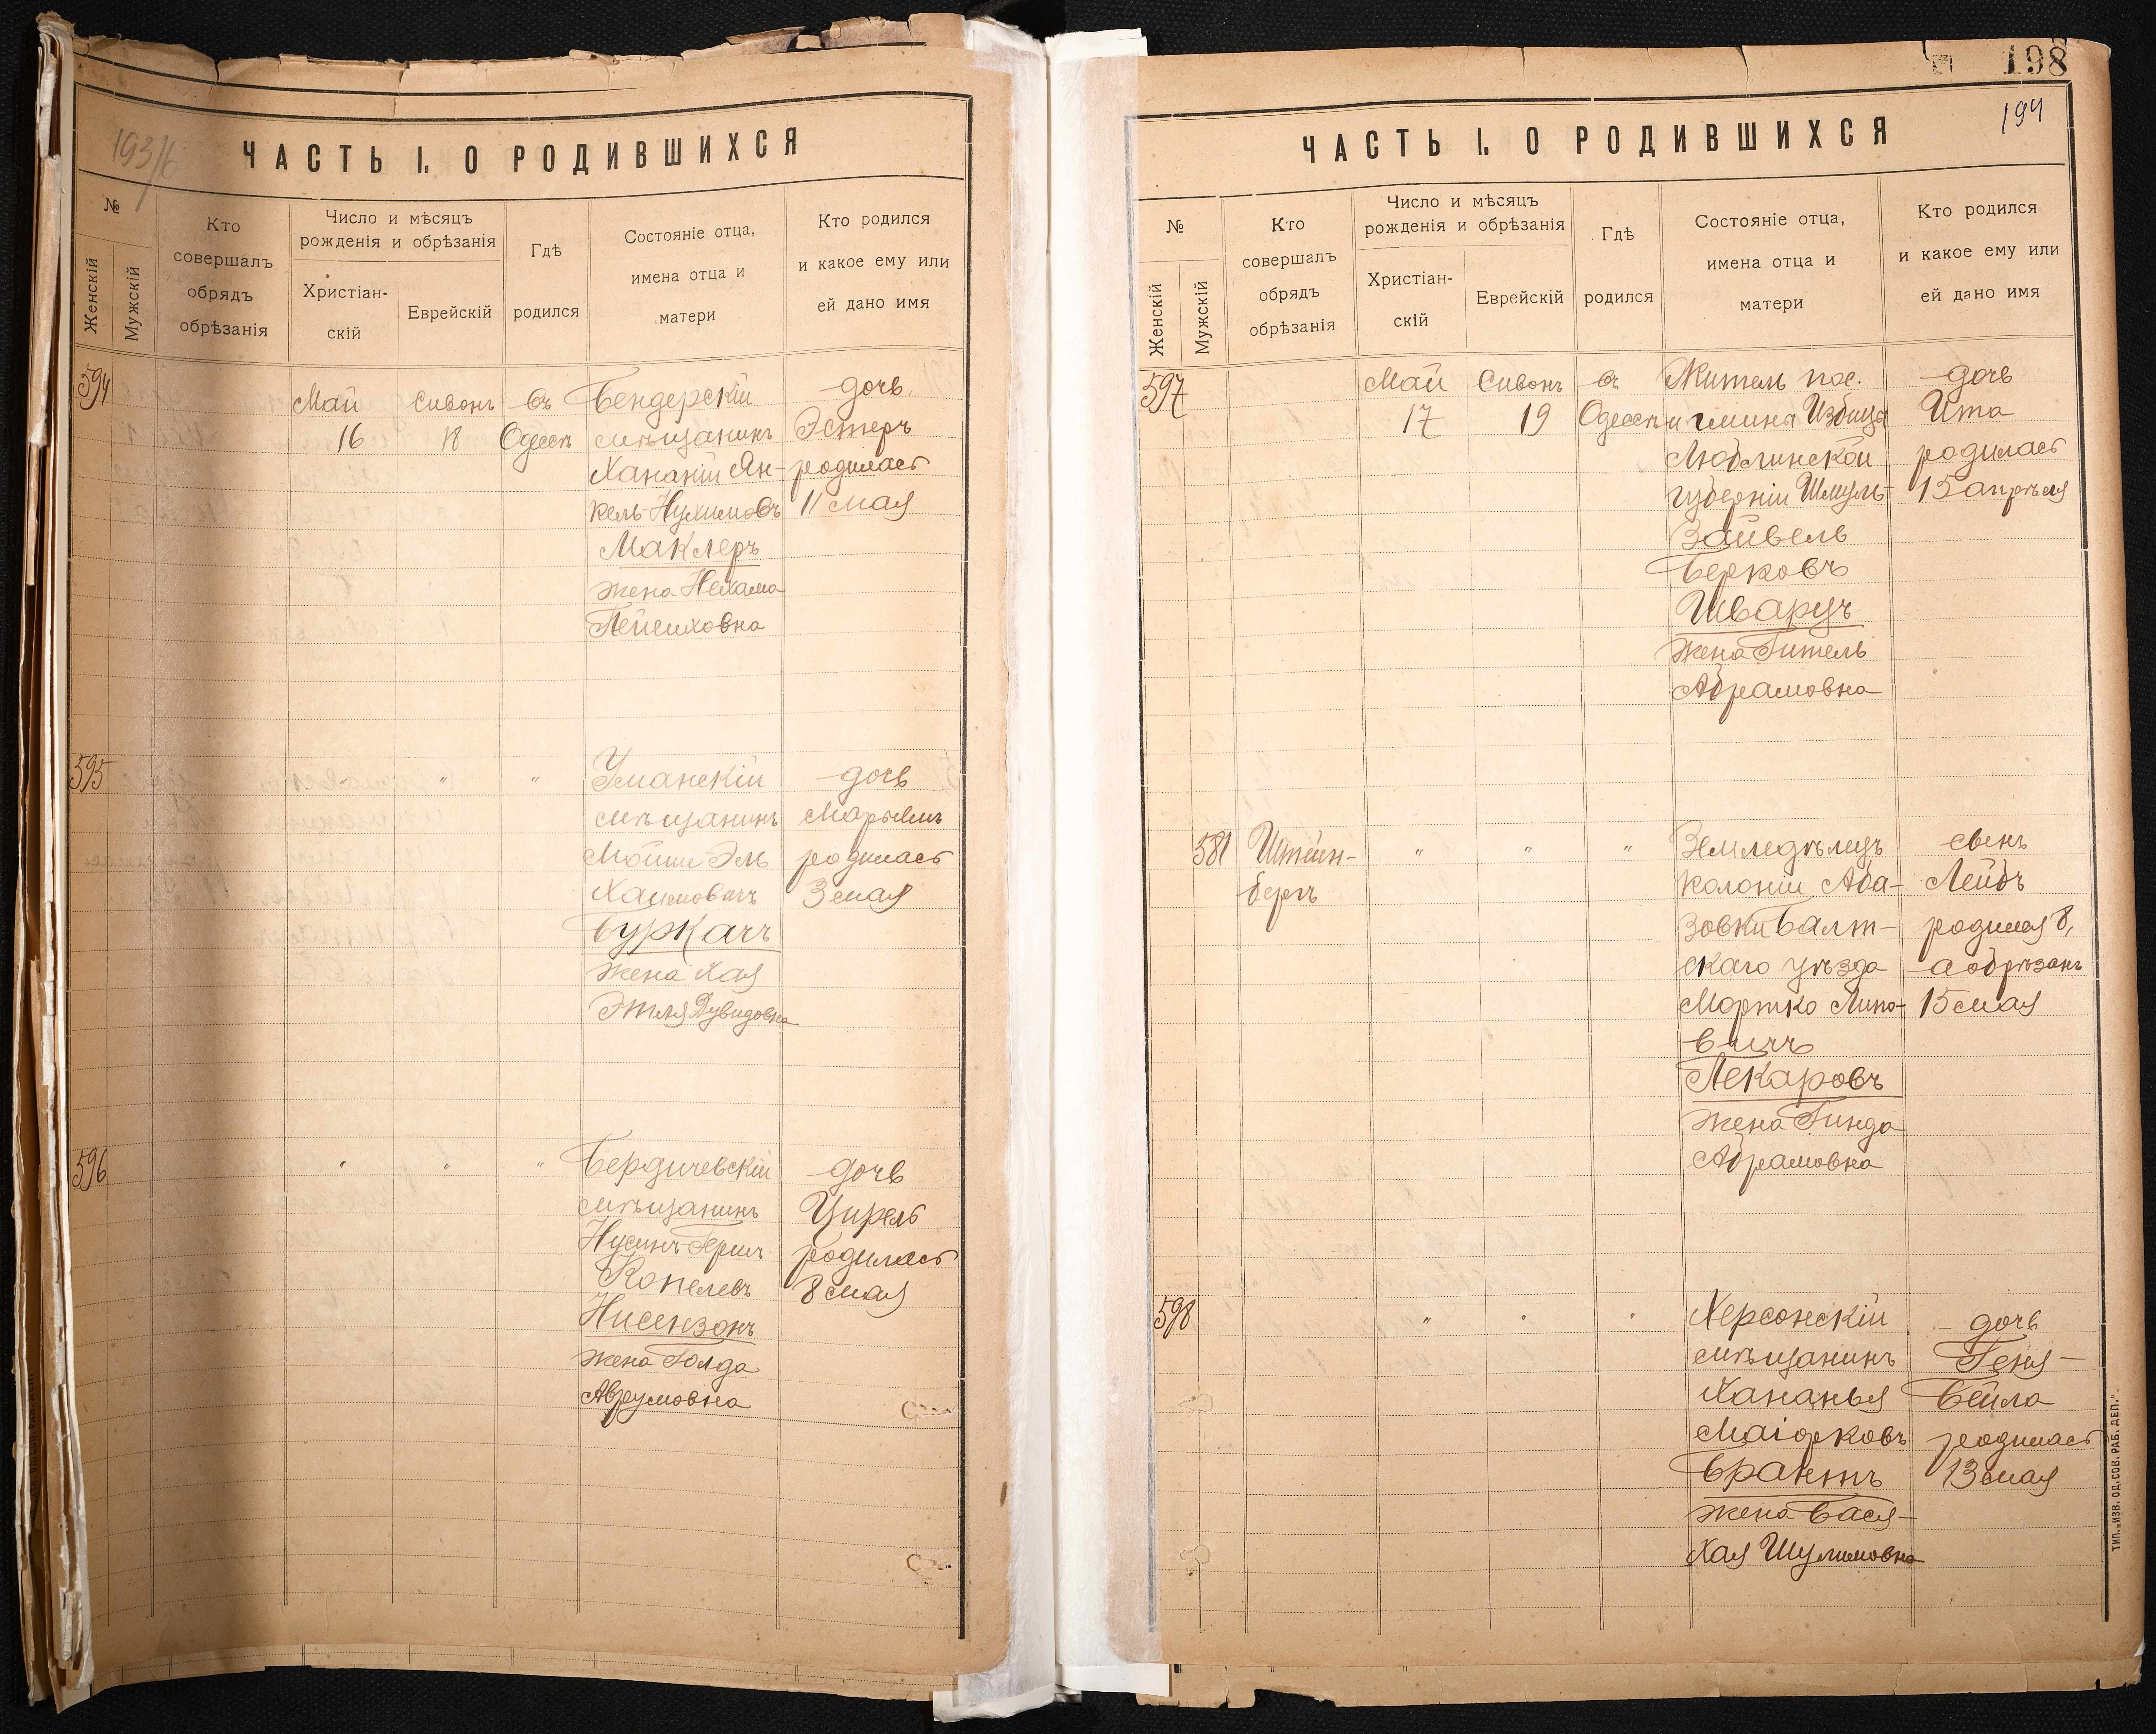 193/б
ЧАСТЬ I. О РОДИВШИХСЯ
№
Женскій
Мужскій
Кто
совершалъ
обрядъ
обрѣзанія
Число и мѣсяцъ
рожденія и обрѣзанія
Христіан-
скій
Еврейскій
Гдѣ
родился
Состояніе отца,
имена отца и
матери
Кто родился
и какое ему или
ей дано имя
594
Май
16
Сивонъ
18
въ
Одессѣ
Бендерскій
мѣщанинъ
Хананій Ян-
кель-Нухимовъ
Маклеръ
жена Нехама
Пейсиховна
дочь
Эстеръ
родилась
11 мая
595
"
"
"
Уманскій
мѣщанинъ
Мойше Эль
Хаимовичъ
Буркачъ
жена Хая
Этля Дувидовна
дочь
Марьямъ
родилась
3 мая
596
"
"
"
Бердичевскій
мѣщанинъ
Нусинъ-Гершъ
Копелевъ
Нисензонъ
жена Голда
Аврумовна
дочь
Цирель
родилась
8 мая
198
194
ЧАСТЬ I. О РОДИВШИХСЯ
№
Женскій
Мужскій
Кто
совершалъ
обрядъ
обрѣзанія
Число и мѣсяцъ
рожденія и обрѣзанія
Христіан-
скій
Еврейскій
Гдѣ
родился
Состояніе отца,
имена отца и
матери
Кто родился
и какое ему или
ей дано имя
597
Май
17
Сивонъ
19
въ
Одессѣ
Житель пос.
и гмины Избица
Люблинской
губерніи Шмуль-
Зайвель
Берковъ
Шварцъ
жена Гитель
Абрамовна
дочь
Ита
родилась
15 апрѣля
581
Штейн-
бергъ
"
"
"
Земледѣлецъ
колоніи Аба-
зовки Балт-
скаго уѣзда
Мортко Липо-
вичъ
Пекаровъ
жена Гинда
Абрамовна
сынъ
Лейбъ
родился 8,
а обрѣзанъ
15 мая
598
"
"
"
Херсонскій
мѣщанинъ
Хананья
Маіорковъ
Брантъ
жена Бася-
Хая Шулимовна
дочь
Геня-
Бейла
родилась
13 мая
ТИП. „ИЗВ. ОД. СОВ. РАБ. ДЕП."